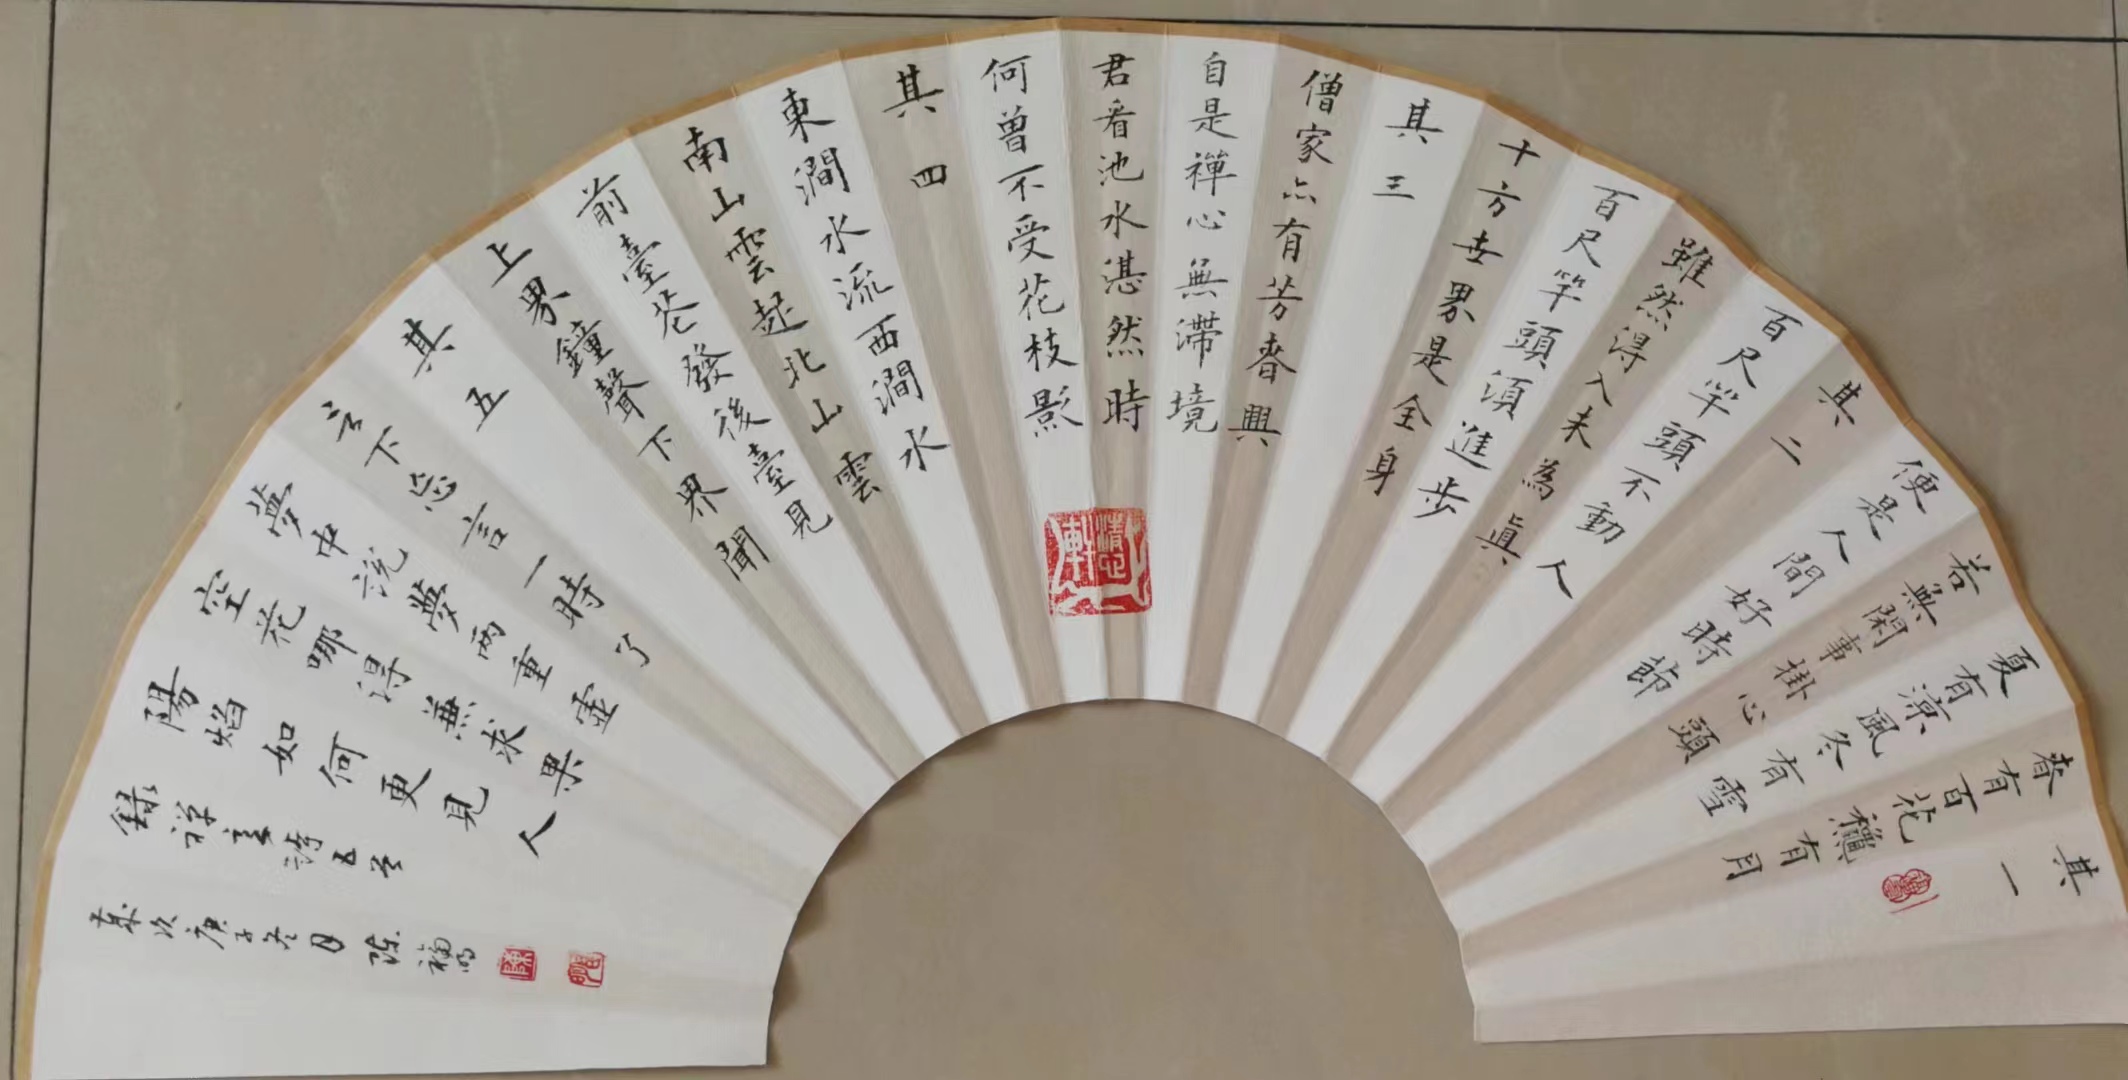 其一
春有百花穐有月
夏有涼風冬有雪
若無閑事掛心頭
便是人間好時節
其二
百尺竿頭不動人
雖然得入未為眞
百尺竿頭須進步
十方世界是全身
其三
僧家亦有芳春興
自是禪心無滯境
君看池水湛然時
何曾不受花枝影
其四
東澗水流西澗水
南山雲起北山雲
前臺花發後臺見
上界鐘聲下界聞
其五
言下忘言一時了
夢中説夢兩重虛
空花哪得兼求果
陽焰如何更見人
錄禅意詩五首
歲次庚子冬月陳福明
陳